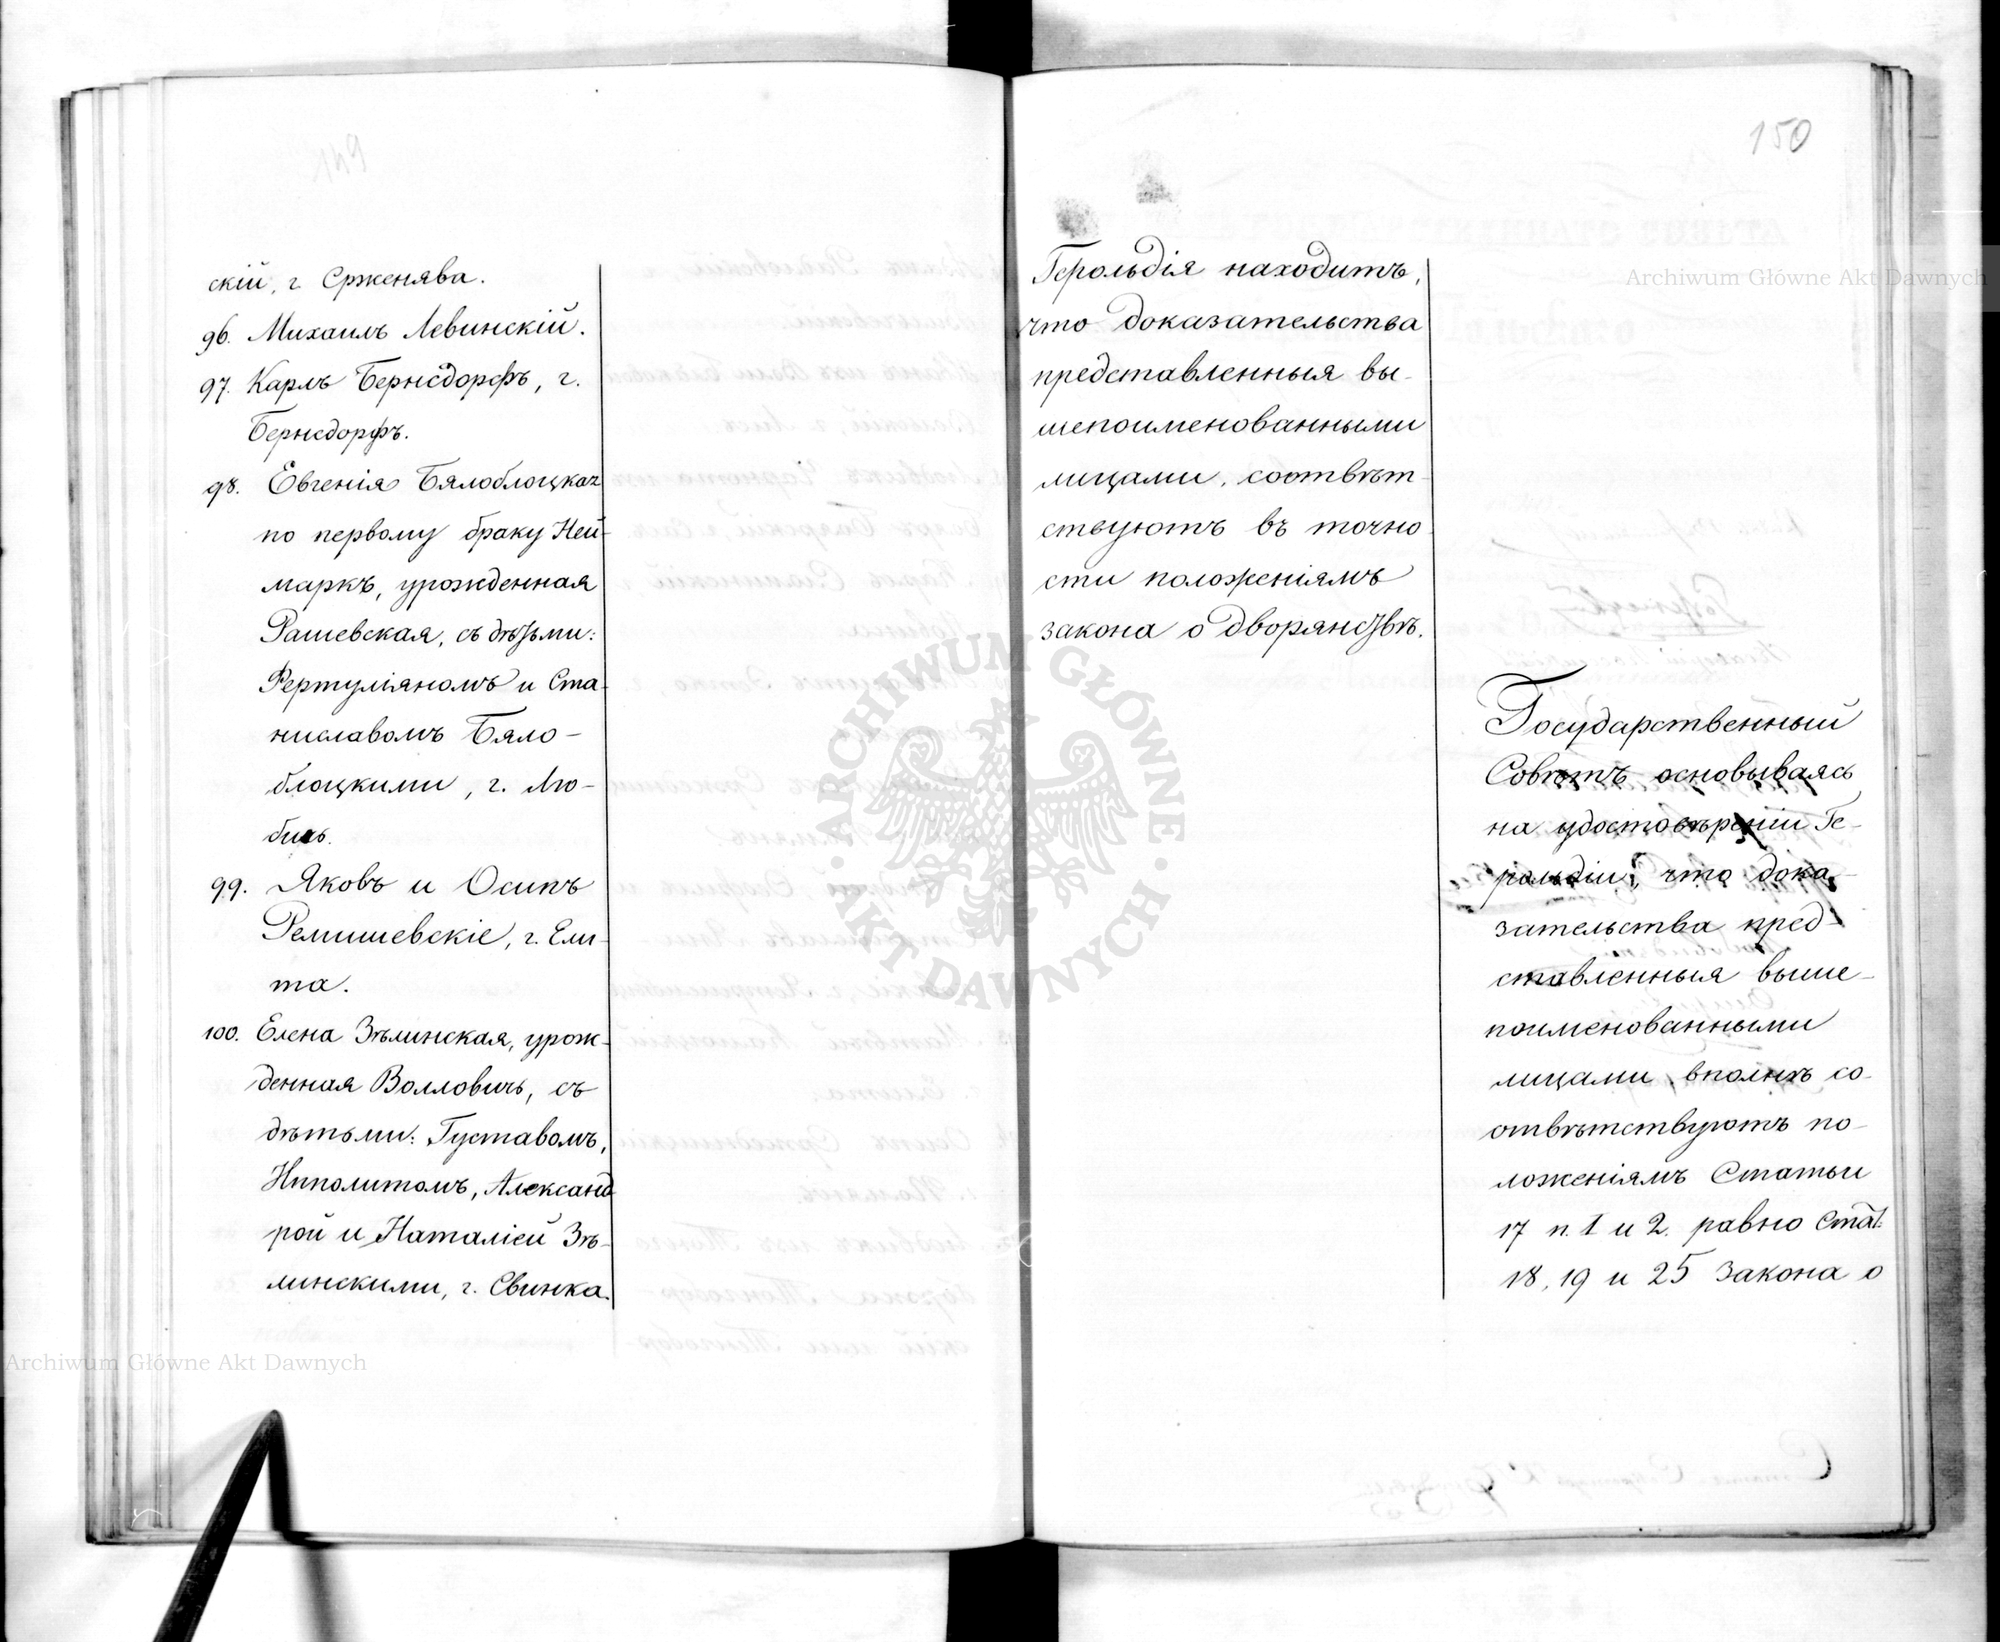 скій, г. Срженява.
96. Михаилъ Левинскій.
97. Карлъ Бернсдорфъ, г.
Бернсдорфъ.
98. Евгенія Бялоблоцкая
по первому браку Ней-
маркъ, урожденная
Рашевская, съ дѣтьми:
Фертуліяномъ и Ста-
ниславомъ Бяло-
блоцкими, г. Лю-
бичь.
99. Яковъ и Осипъ
Ремишевскіе, г. Ели-
та.
100. Елена Зѣлинская, урож-
денная Волловичь, съ
дѣтьми: Густавомъ,
Ипполитомъ, Александ-
рой и Наталіей Зѣ-
линскими, г. Свинка.
150
Герольдія находитъ,
что доказательства
представленныя вы-
шепоименованными
лицами, соотвѣт-
ствуютъ въ точно-
сти положеніямъ
закона о дворянствѣ.
Государственный
Совѣтъ основываясь
на удостовѣреніи Ге-
рольдіи, что дока-
зательства пред-
ставленныя выше-
поименованными
лицами, вполнѣ со-
отвѣтствуютъ по-
ложеніямъ Статьи
17 п. 1 и 2. равно Стат:
18, 19 и 25 Закона о
Archiwum Główne Akt Dawnych
Archiwum Główne Akt Dawnych
ARCHIWUM GŁÓWNE
AKT DAWNYCH